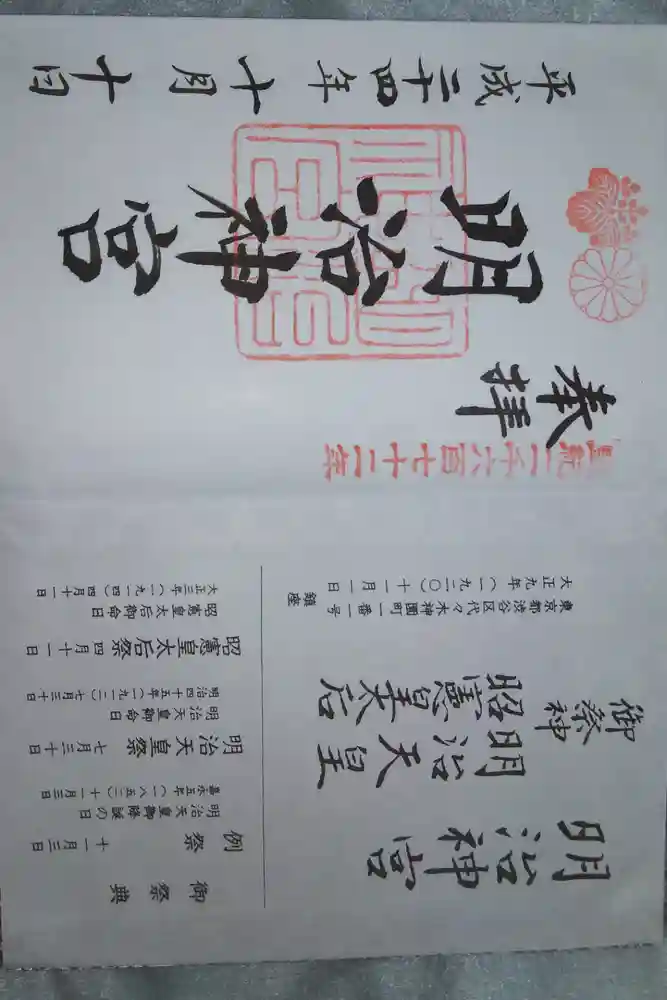 明治神宮
御祭神
明治天皇
昭憲皇太后
東京都渋谷区代々木神園町一番一号
鎮座
大正九年(一九二〇)十一月一日
御祭典
例祭 十一月三日
明治天皇御降誕の日
嘉永五年(一八五二)十一月三日
明治天皇祭 七月三十日
明治天皇御命日
明治四十五年(一九一二)七月三十日
昭憲皇太后祭 四月十一日
昭憲皇太后御命日
大正三年(一九一四)四月十一日
皇紀二千六百七十二年
奉拝
明治神宮
平成二十四年十月十日